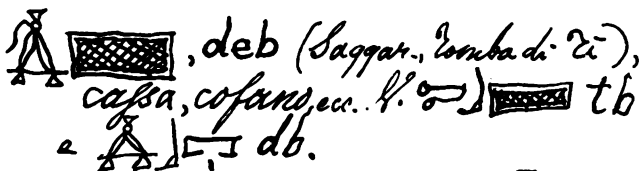 , deb (Saqqar., Tomba di Ti),
cassa, cofano, ecc. V. tb
e db.